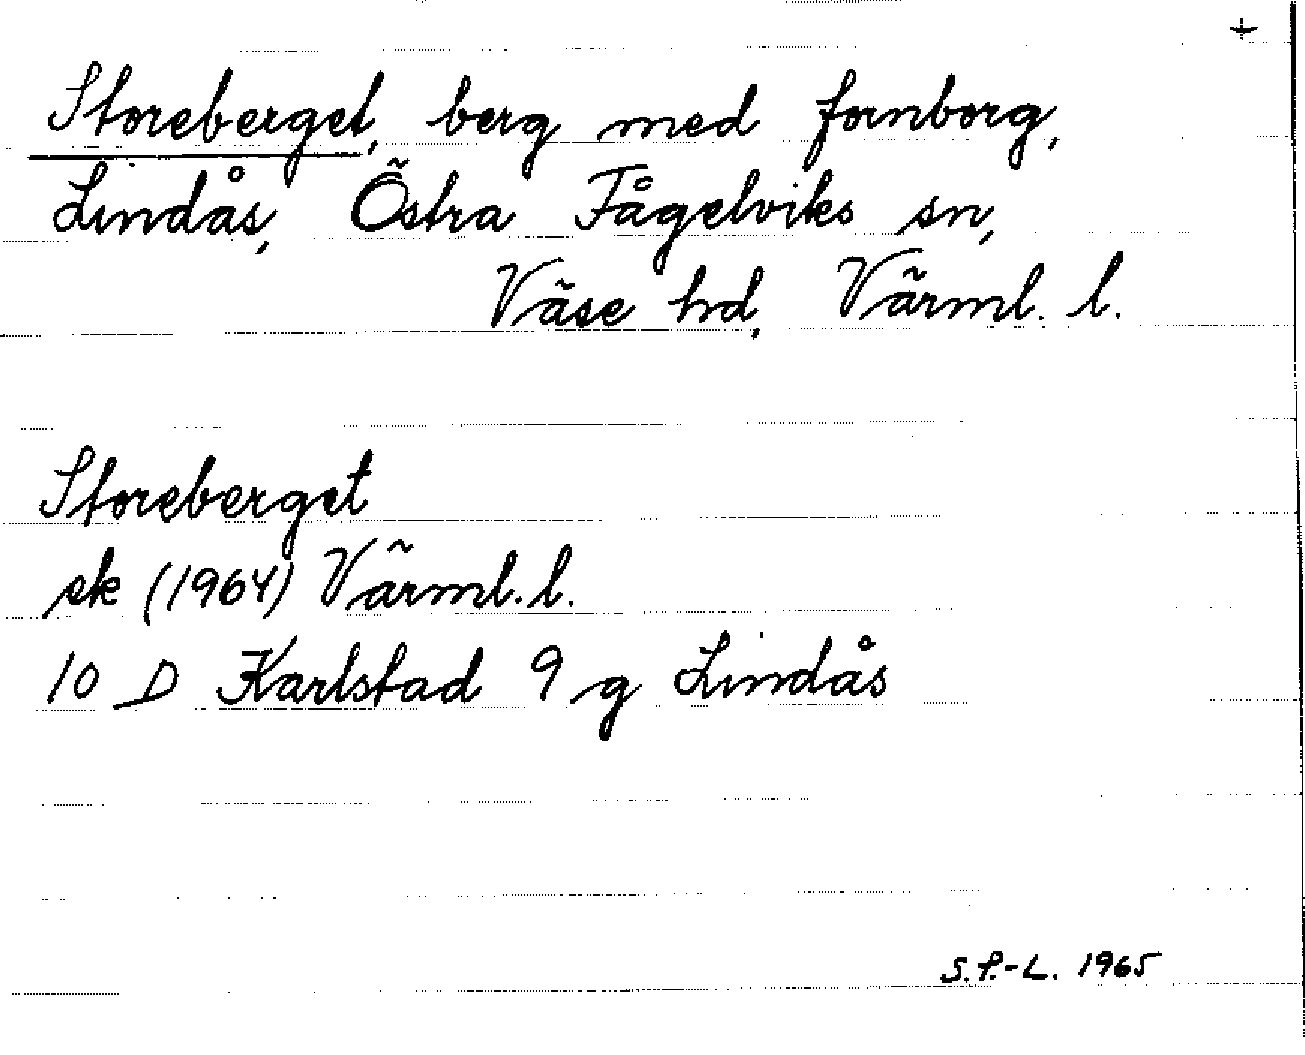 Storeberget, berg med fornborg,
Lindås, Östra Fågelviks sn,
Väse hd, Värml. l.
Storeberget
ek (1964) Värml. l.
10 D Karlstad 9 g Lindås
S.P.-L. 1965